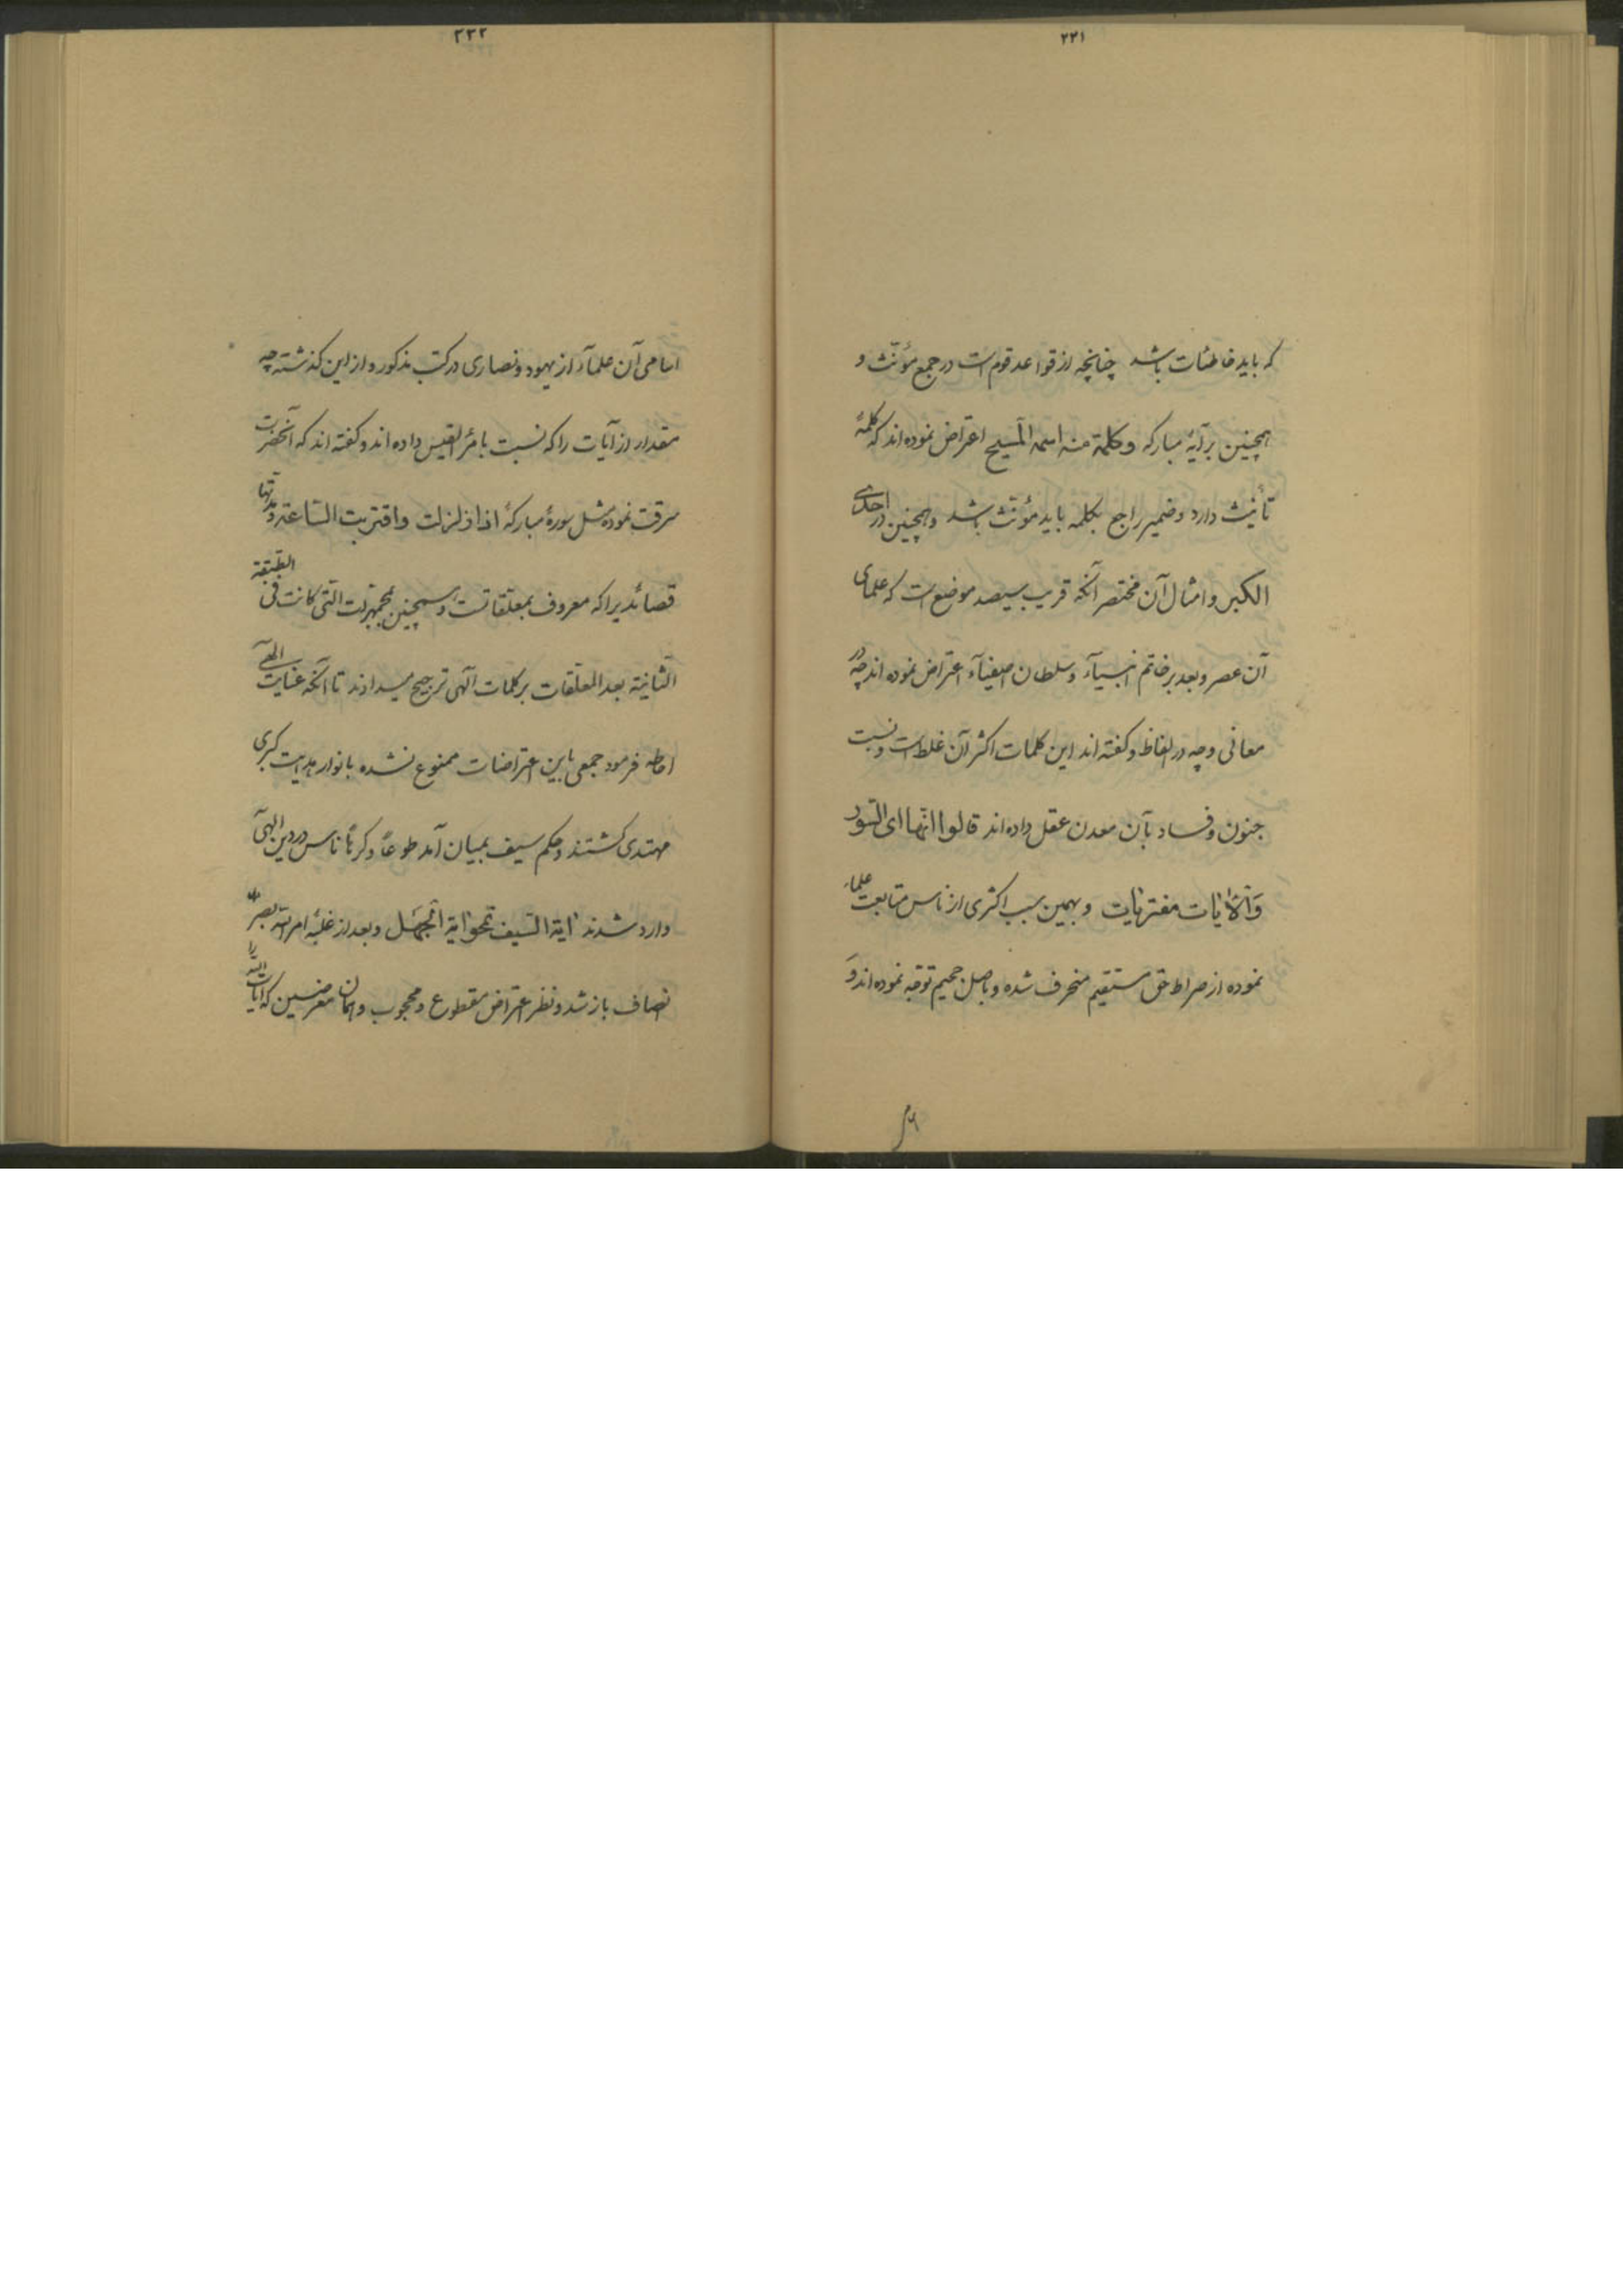 ۲۲۱
که باید خاطئات باشد چنانچه از قواعد قوم است در جمع مؤنّث و
همچنین بر آیهٔ مبارکه و کلمة منه اسمه المسیح اعتراض نموده‌اند که کلمهٔ
تأنیث دارد و ضمیر راجع بکلمه باید مؤنّث باشد و همچنین در احدی
الکبر و امثال آن مختصر آنکه قریب سیصد موضع است که علمای
آن عصر و بعد بر خاتم انبیآء و سلطان اصفیآء اعتراض نموده‌اند چه در
معانی و چه در الفاظ و گفته‌اند این کلمات اکثر آن غلط است و نسبت
جنون و فساد بآن معدن عقل داده‌اند قالوا انّها ای السّور
و الآیات مفتریات و بهمین سبب اکثری از ناس متابعت علماء
نموده از صراط حق مستقیم منحرف شده و باصل جحیم توجّه نموده‌اند و
۲۲۲
اسامی آن علمآء از یهود و نصاری در کتب مذکور و از این گذشته چه
مقدار از آیات را که نسبت بامرُ القیس داده‌اند و گفته‌اند که آنحضرت
سرقت نموده مثل سورهٔ مبارکهٔ اذا زلزلت و اقتربت السّاعة و مدتها
قصائدیرا که معروف بمعلّقاتست و همچنین بمجمهرات الّتی کانت فی الطّبقة
الثّانیة بعد المعلّقات بر کلمات الٓهی ترجیح میدادند تا آنکه عنایت الٓهی
احاطه فرمود جمعی باین اعتراضات ممنوع نشده بانوار هدایت کبری
مهتدی گشتند و حکم سیف بمیان آمد طوعاً و کرهاً ناس در دین الٓهی
وارد شدند آیة السّیف تمحو آیة الجهل و بعد از غلبهٔ امر اللّه بصر
انصاف باز شد و نظر اعتراض مقطوع و محجوب و همان معرضین که آیات اللّه را